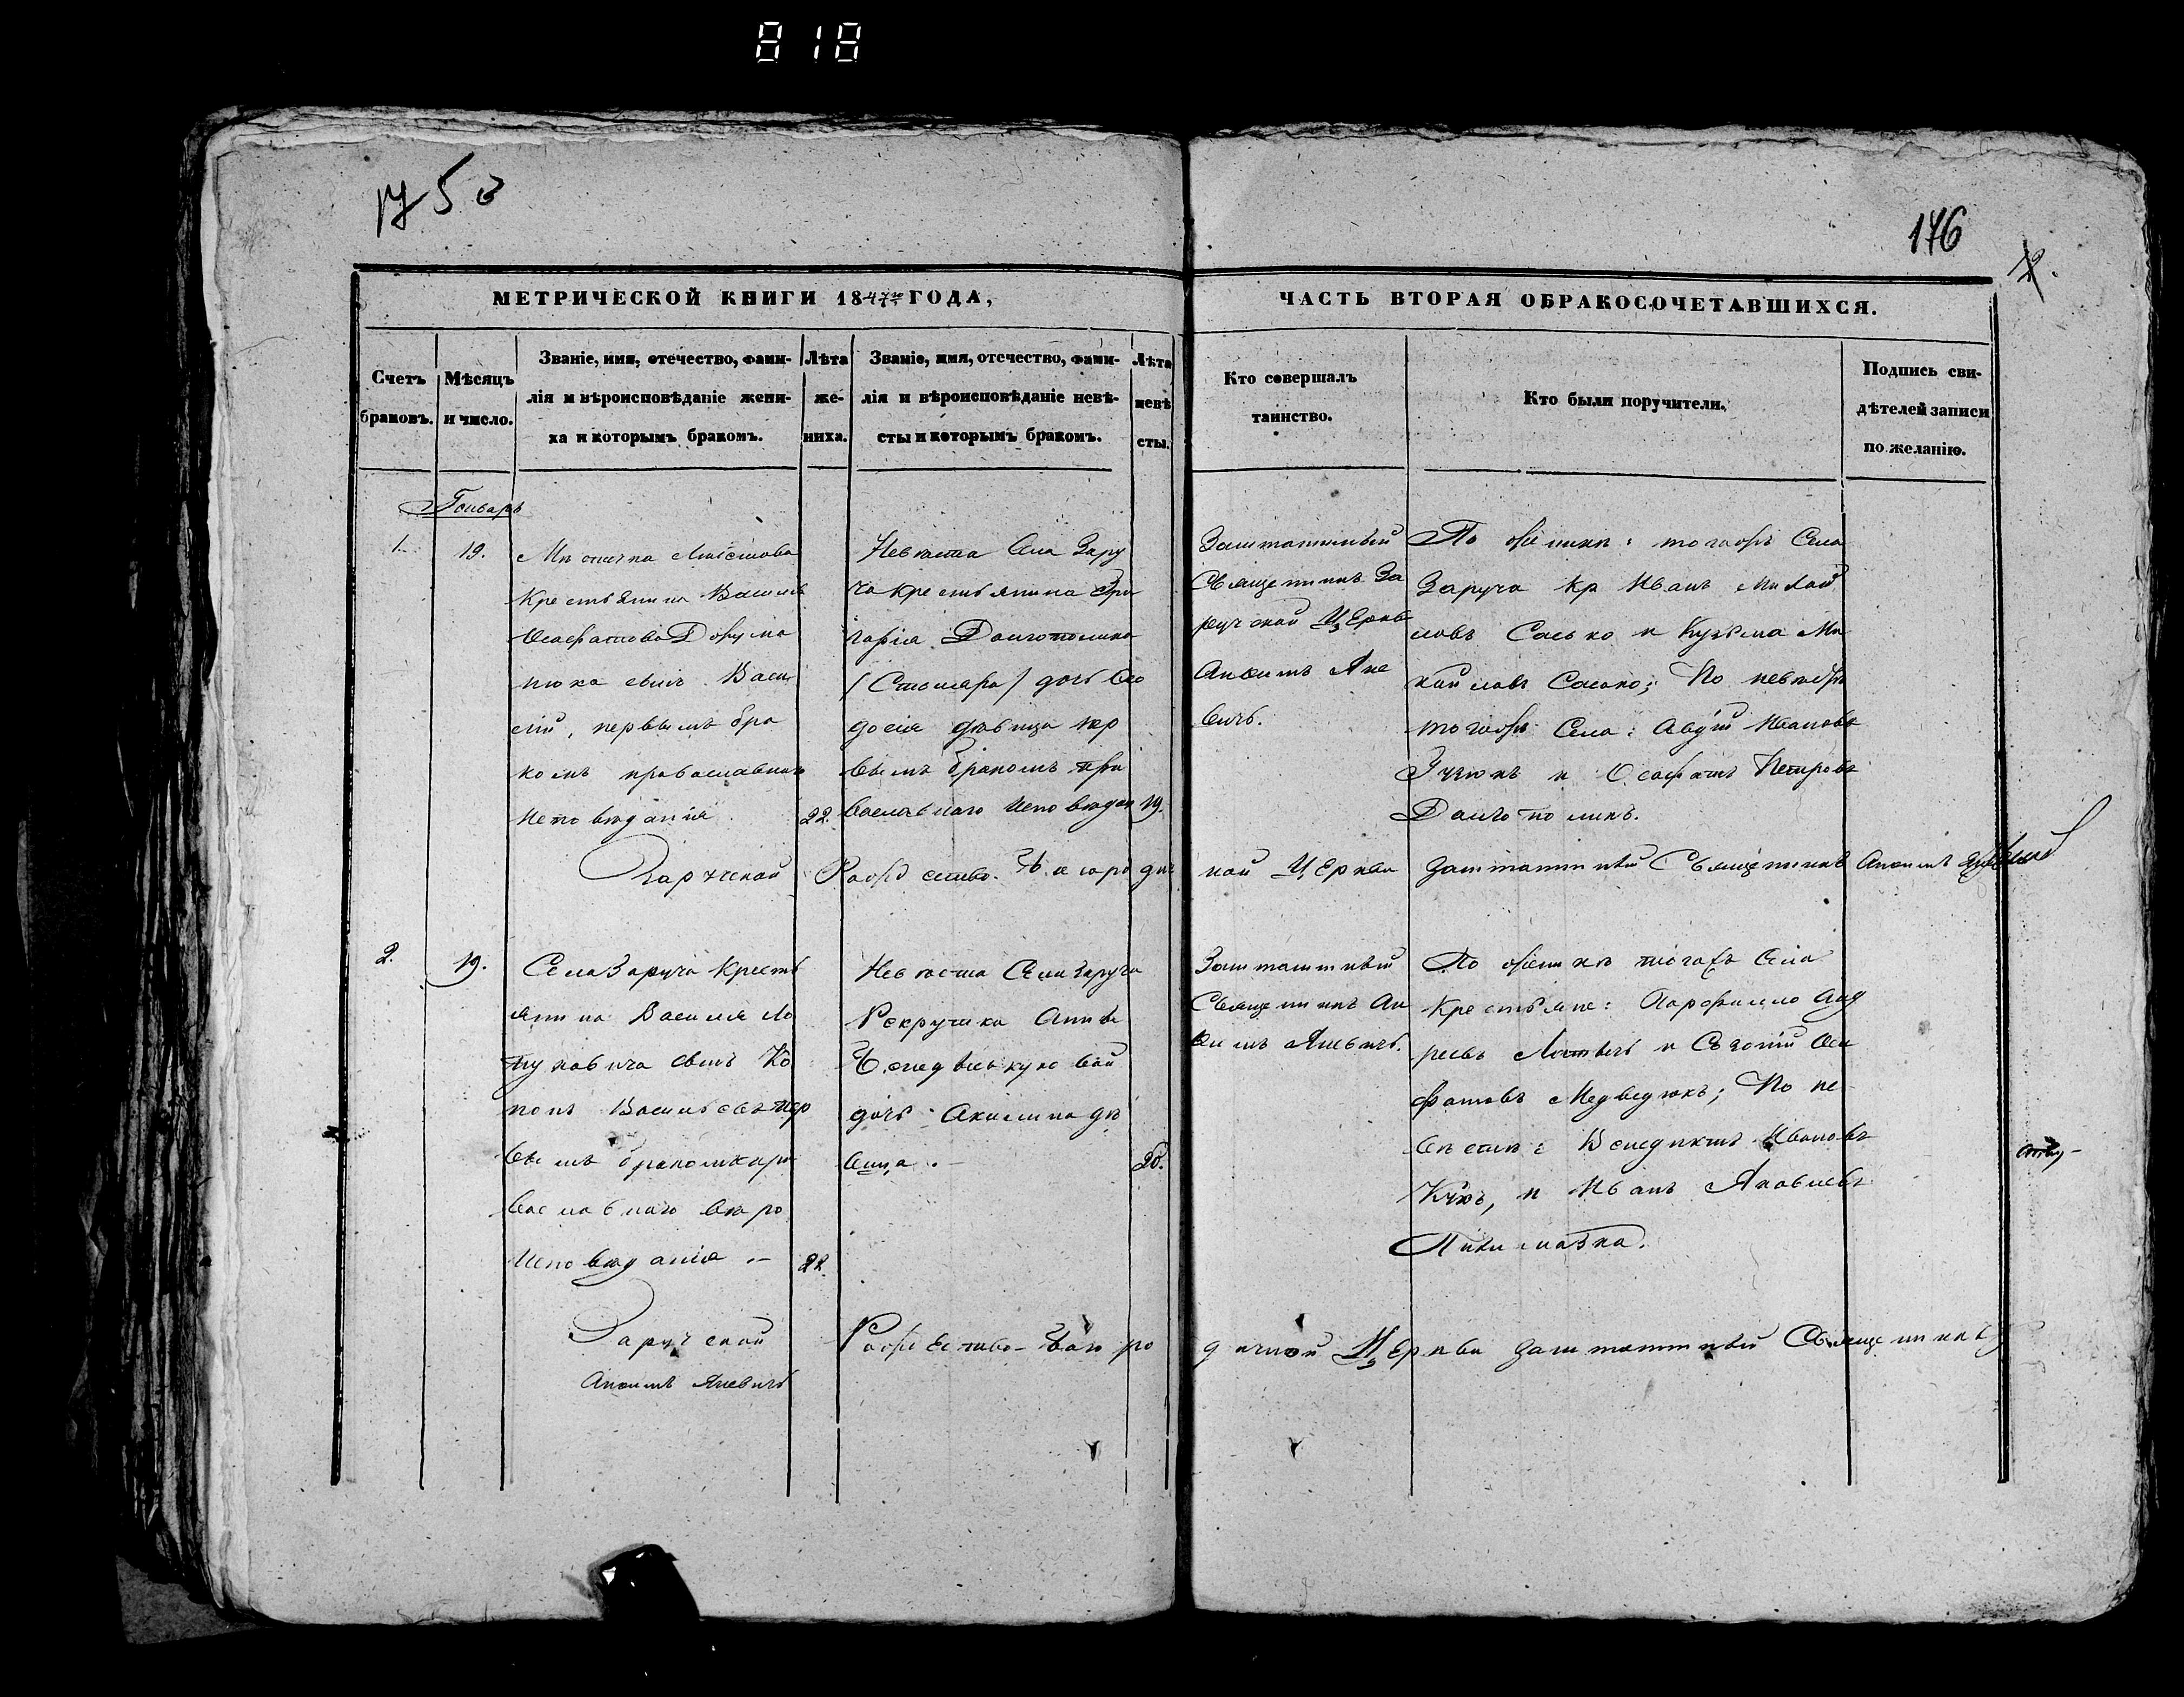 818
175 о
176
2.
МЕТРИЧЕСКОЙ КНИГИ 1847го ГОДА,
ЧАСТЬ ВТОРАЯ О БРАКОСОЧЕТАВШИХСЯ.
Счетъ
браковъ.
Мѣсяцъ
и число.
Званіе, имя, отечество, фами-
лія и вѣроисповѣданіе жени-
ха и которымъ бракомъ.
Лѣта
же-
ниха.
Званіе, имя, отечество, фами-
лія и вѣроисповѣданіе невѣ-
сты и которымъ бракомъ.
Лѣта
невѣ
сты.
Кто совершалъ
таинство.
Кто были поручители.
Подпись сви-
дѣтелей записи
по желанію.
Генварь
1.
19.
Мѣстечка
Крестьянина Василія
Осафатова
сынъ Васи
лій, первымъ бра
комъ православнаго
исповѣданія
22.
Невѣста Села Зару
ча крестьянина Гри
горія Долгополика
/Столяра/ дочь Ѳео
досія дѣвица пер
вымъ бракомъ пра
вославнаго исповѣдан
19.
Заштатный
Священникъ За
ручской Церкви
Анѳимъ Яне
вичъ.
По женихѣ: тогожъ Села
Заруча кр Иванъ Михай
ловъ Сасько и Кузьма Ми
хайловъ Сасько; По невѣстѣ
тогожъ Села: Авдій Ивановъ
и Осафатъ Петровъ
Долгополикъ.
Заручской Рождество-Богородич
ной Церкви Заштатный Священникъ Анѳимъ Яневичъ
2.
19.
Села Заруча Кресть
янина Василія Ло
пуховича сынъ Ко
нонъ Васильевъ пер
вымъ бракомъ пра
вославнаго вѣро
исповѣданія
22.
Невѣста Села Заруча
Рекрутка Анны
дочь Акилина дѣ
вица.
20.
Заштатный
Священникъ Ан
ѳимъ Яневичъ.
По женихѣ тогожъ Села
Крестьяне: Парѳентій Анд
реевъ и Оси
фатовъ Медведюкъ; По не
вѣстѣ: Венедиктъ Ивановъ
и Иванъ Яковлевъ
Заручской Рождество-Богоро
дичной Церкви Заштатный Священникъ
Анѳимъ Яневичъ